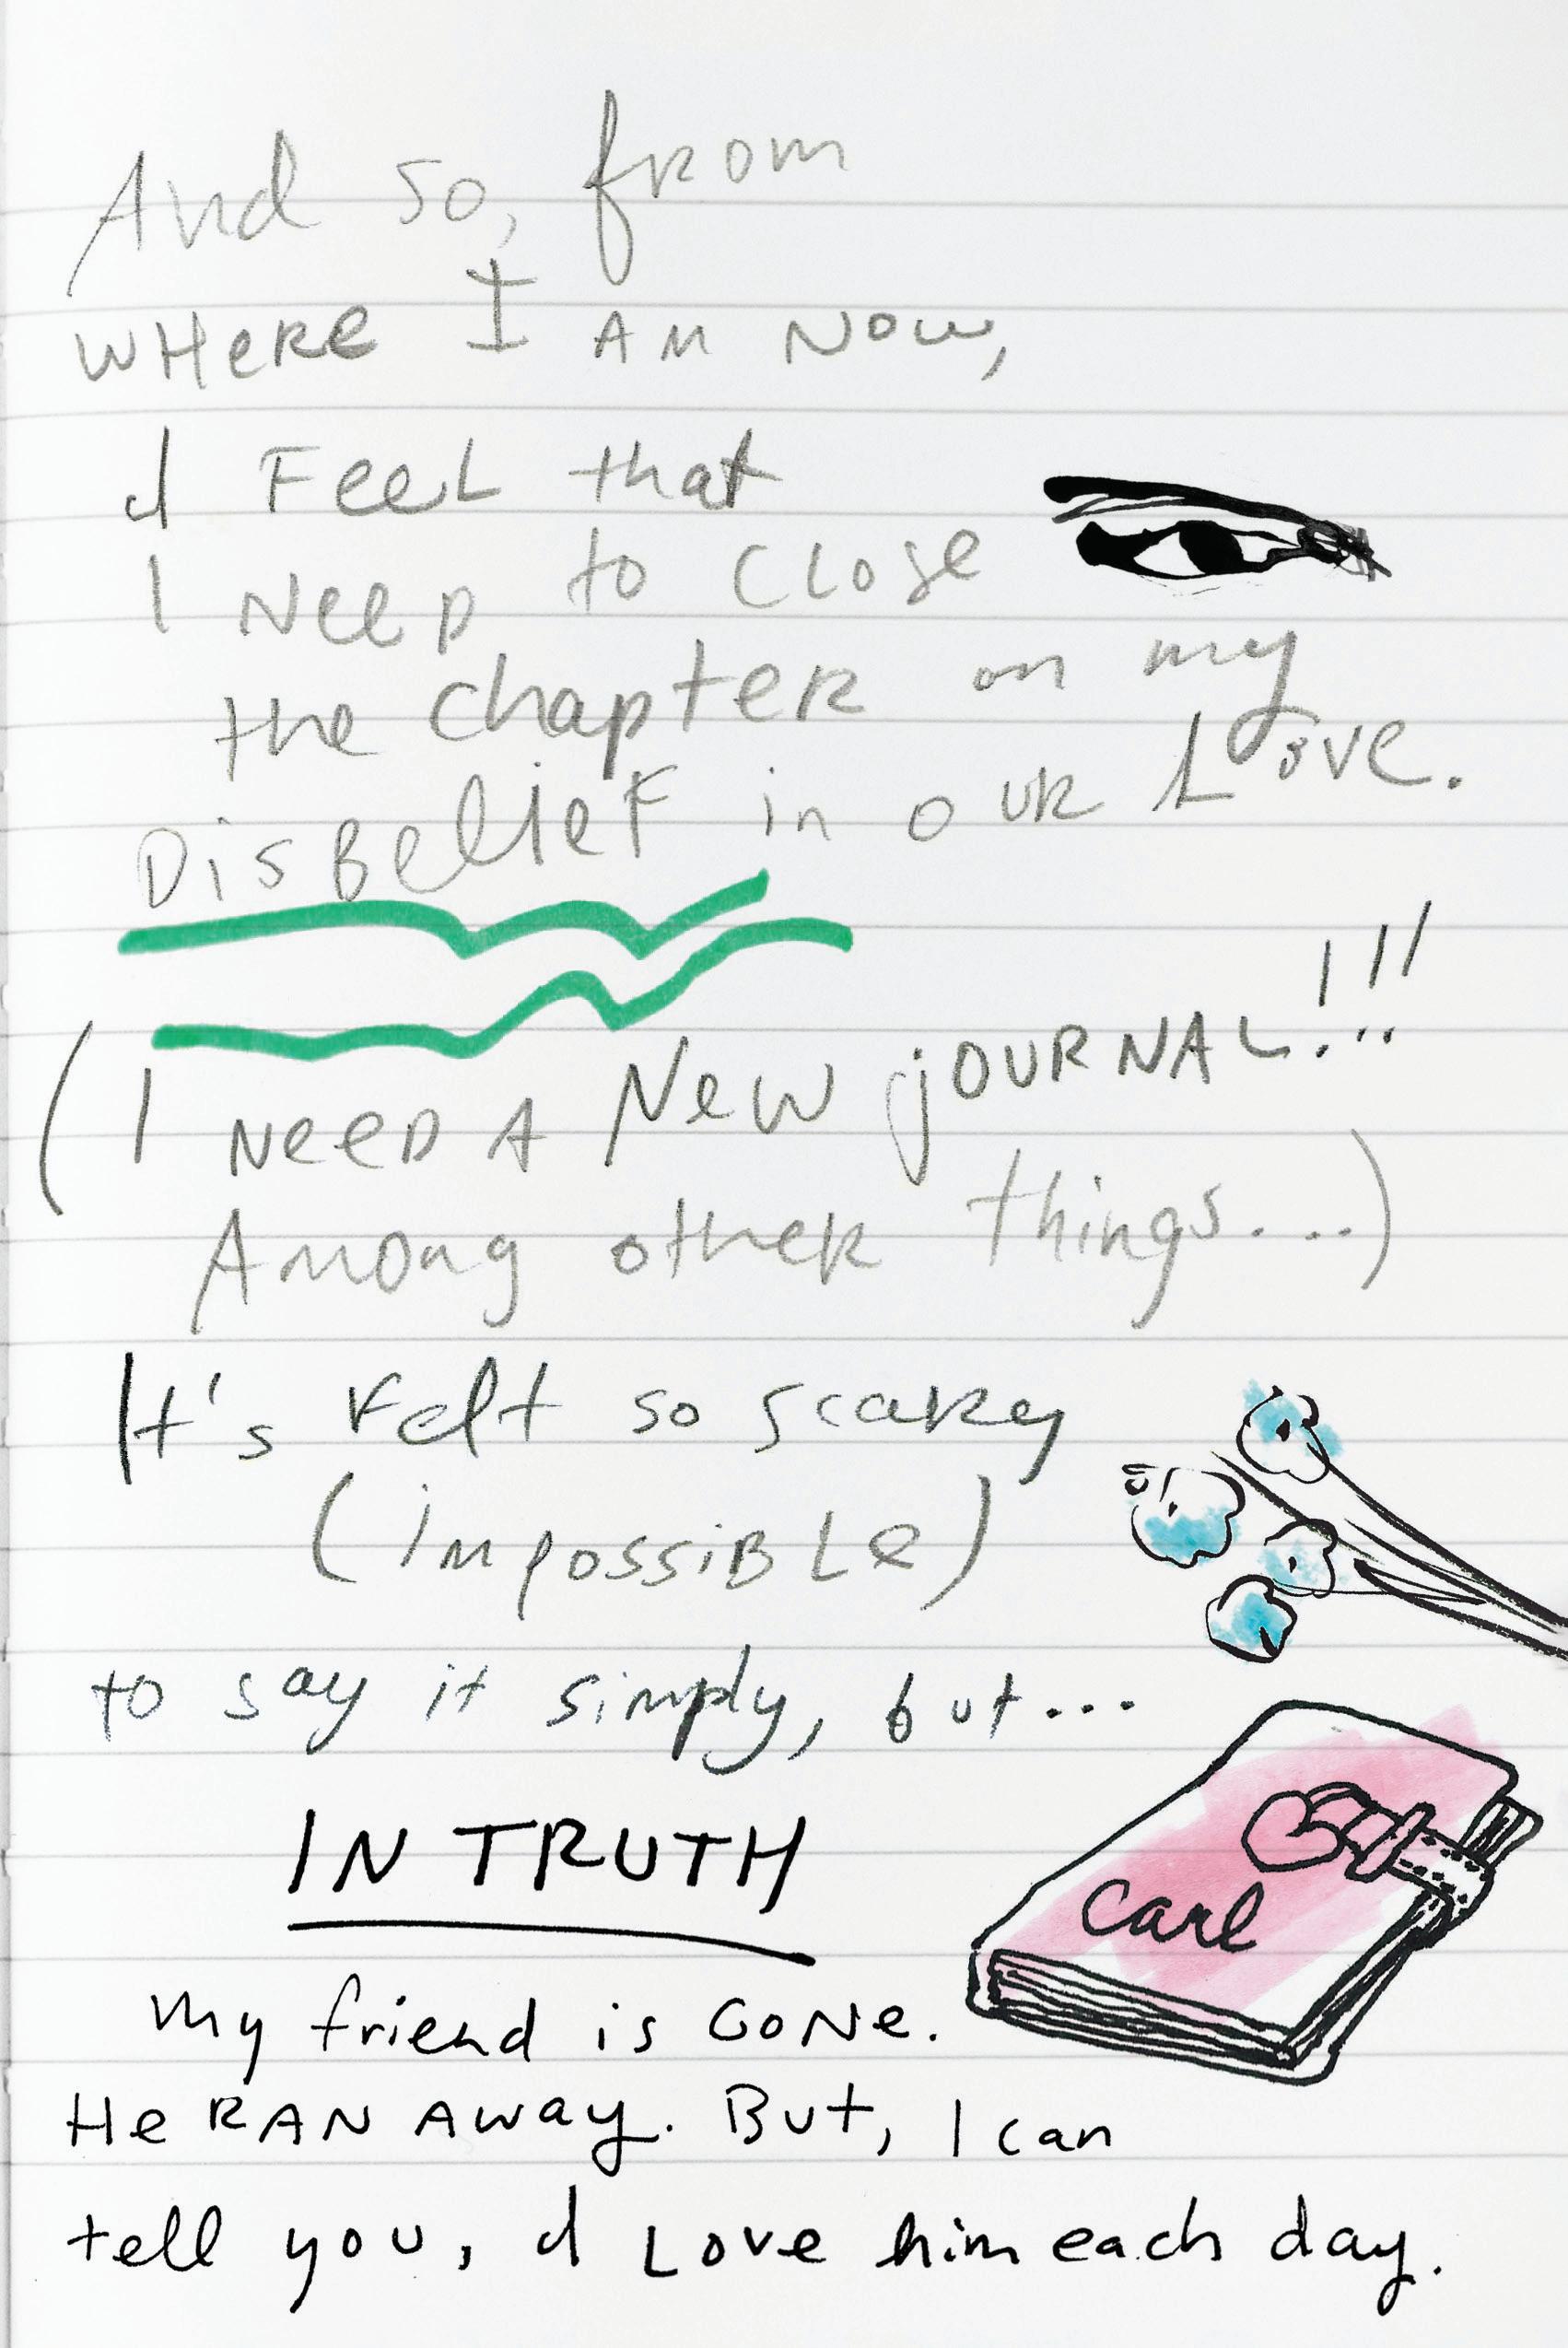 And so, from
WHeRe I AM NOW,
I FeeL that
I NeeD to CLose
the chapteR on my
DisBelieF in OUR Love.
(I NeeD A New jOURNAL!!!
Among otheR things....)
It's Felt so scaRy
(impossiBLe)
to say it simply, but...
IN TRUTH
carl
my friend is GoNe.
He RAN AWay. But, I can
tell you, I Love him each day.